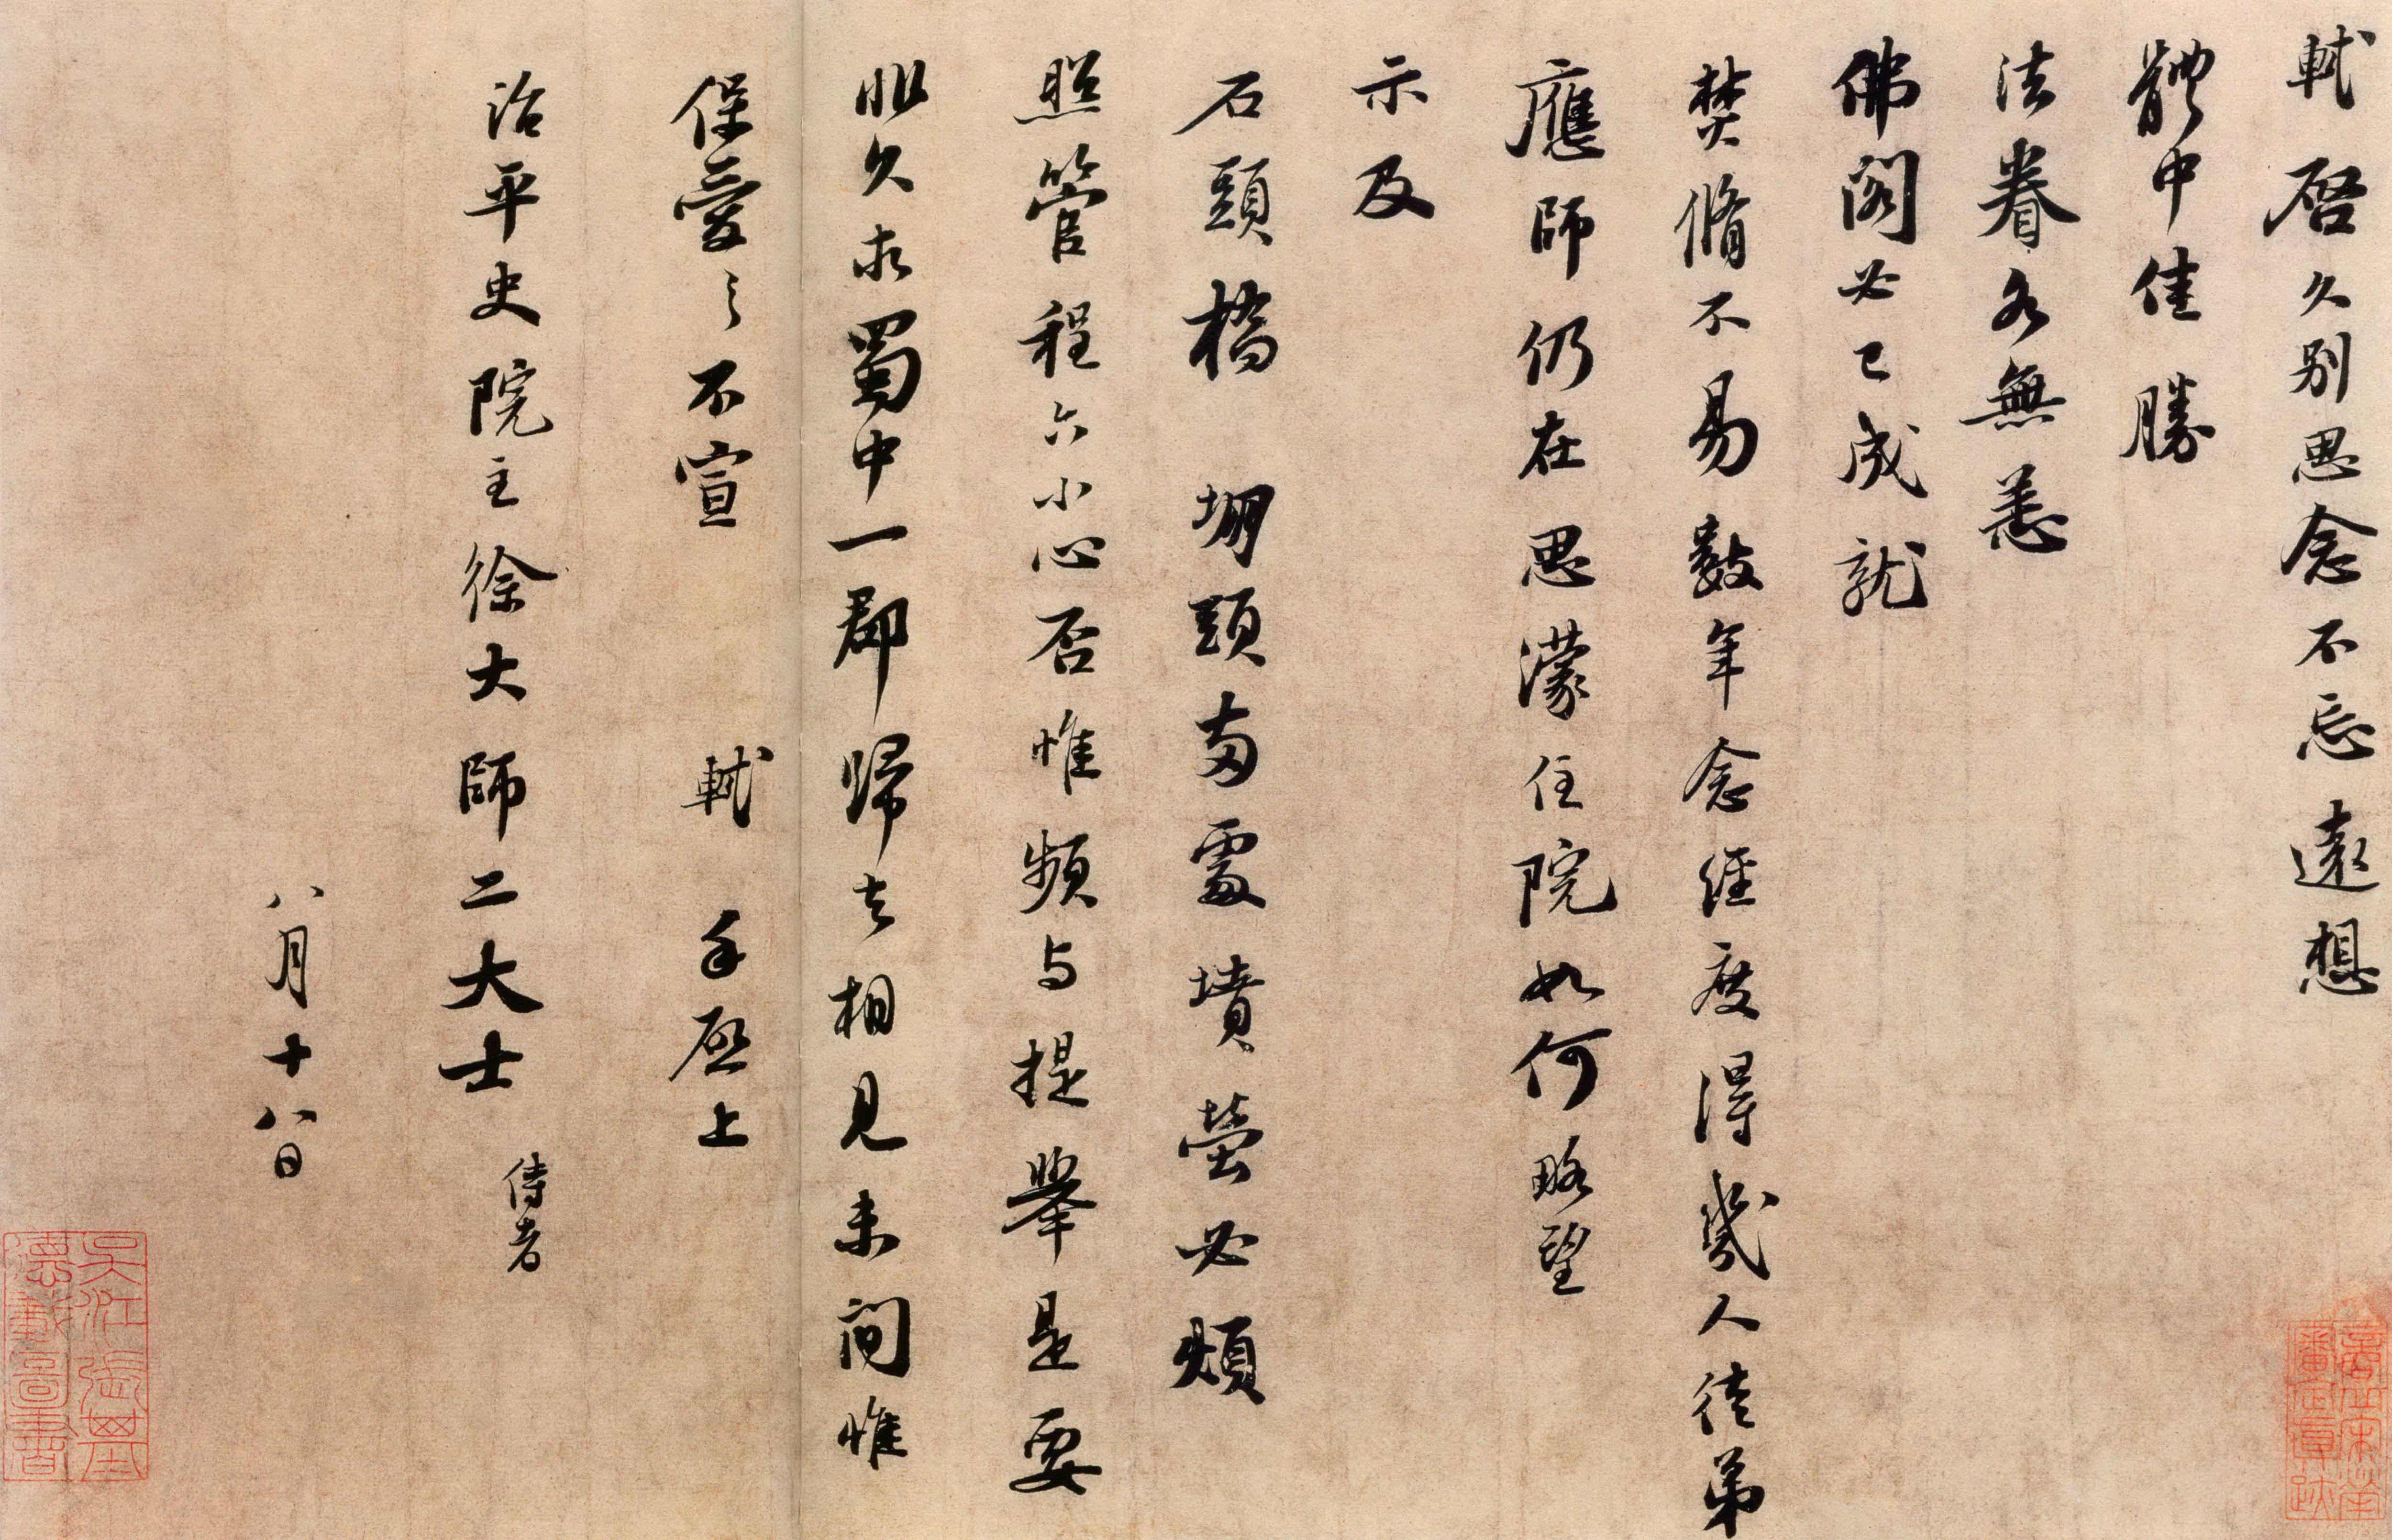 軾啓久别思念不忘遠想
體中佳勝
法眷各無恙
佛閣必已成就
焚脩不易數年念經度得幾人徒弟
應師仍在思濛住院如何略望
示及
石頭橋 堋頭兩處墳塋必煩
照管程六小心否惟頻与提舉是要
非久求蜀中一郡歸去相見未間惟
保愛之不宣 軾手啓上
治平史院主徐大師二大士 侍者
八月十八日
吳江張基
德載圖書